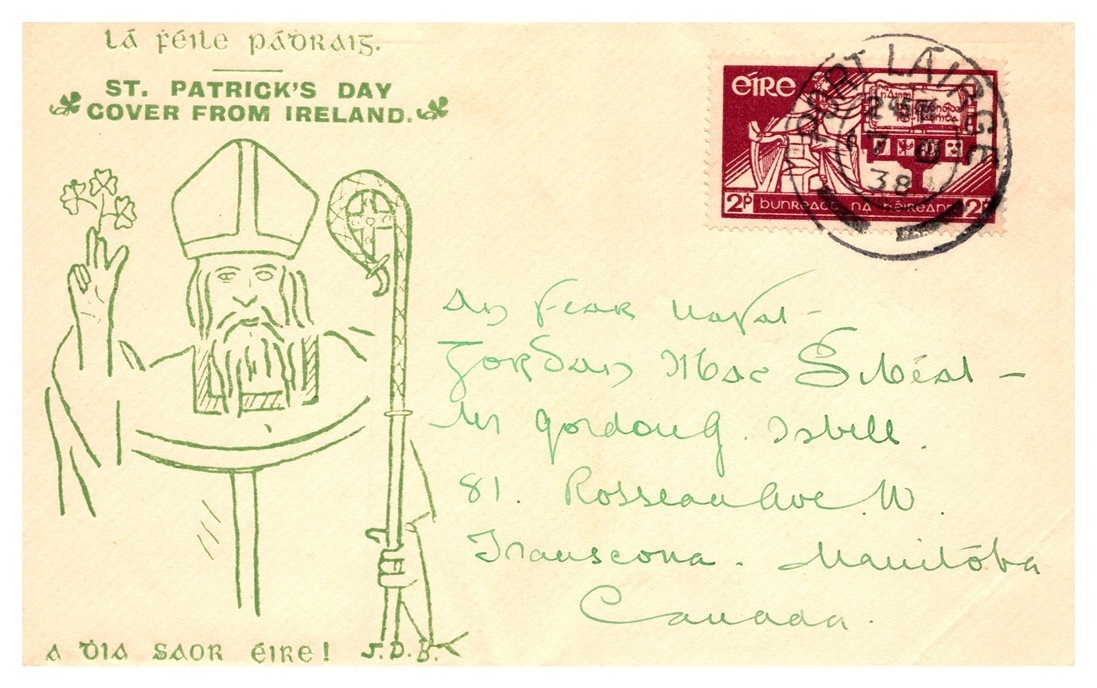 Lá ḟéile Pádraig.
ST. PATRICK'S DAY
COVER FROM IRELAND.
éire
PORT LÁIRGE
2 45 PM
38
2p bunreacht na héireann 2p
An Fear Uasal -
Gordan Mac
Mr Gordon G. Isbell.
81. Rosseau Ave. W.
Transcona. Manitoba
Canada.
A Ḋia SAOR éire! J.D.B.